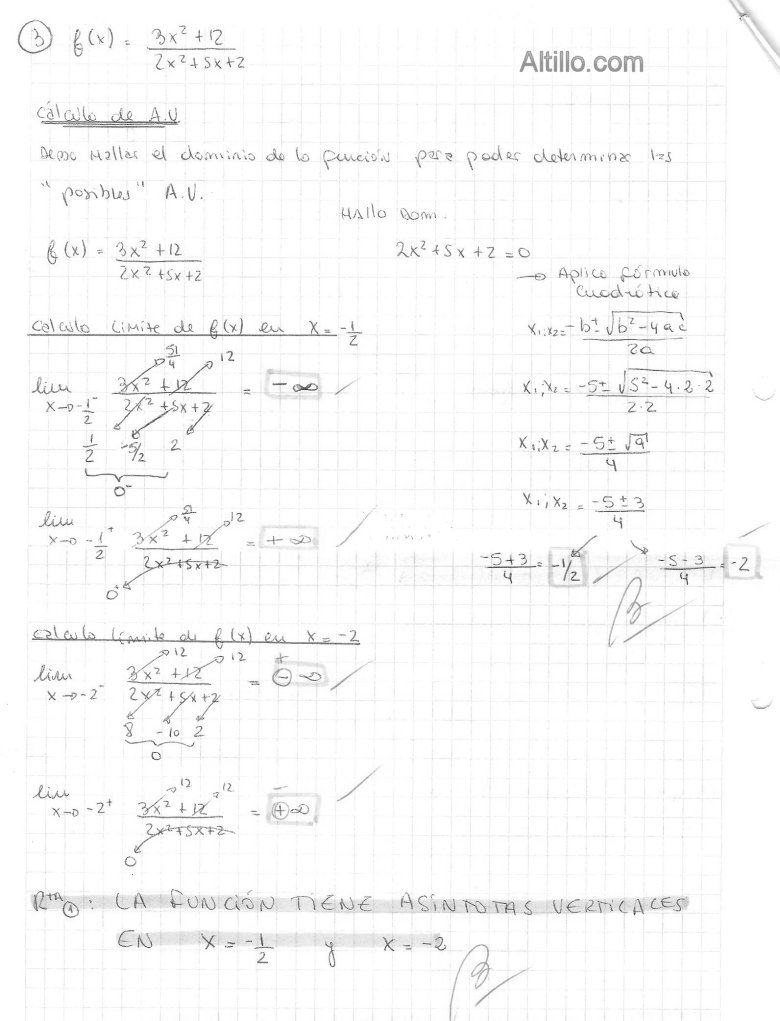 ③ f(x) = (3x² + 12)/(2x² + 5x + 2)
Altillo.com
Cálculo de A.V
Debo Hallar el dominio de la función para poder determinar las
"posibles" A.V.
Hallo Dom.
f(x) = (3x² + 12)/(2x² + 5x + 2)
2x² + 5x + 2 = 0
→ Aplico fórmula
Cuadrática
x₁;x₂ = (-b ± √(b² - 4ac))/2a
x₁;x₂ = (-5 ± √(5² - 4·2·2))/2·2
x₁;x₂ = (-5 ± √9)/4
x₁;x₂ = (-5 ± 3)/4
(-5+3)/4 = -1/2
(-5-3)/4 = -2
B
Calculo Límite de f(x) en x = -1/2
51/4 12
lim x→-1/2⁻ (3x² + 12)/(2x² + 5x + 2) = -∞
1/2 -5/2 2
0⁻
51/4 12
lim x→-1/2⁺ (3x² + 12)/(2x² + 5x + 2) = +∞
0⁺
calculo límite de f(x) en x = -2
12 12 +
lim x→-2⁻ (3x² + 12)/(2x² + 5x + 2) = ⊖∞
8 -10 2
0
12 12 -
lim x→-2⁺ (3x² + 12)/(2x² + 5x + 2) = ⊕∞
0
Rta①: LA FUNCIÓN TIENE ASÍNTOTAS VERTICALES
EN x = -1/2 y x = -2
B